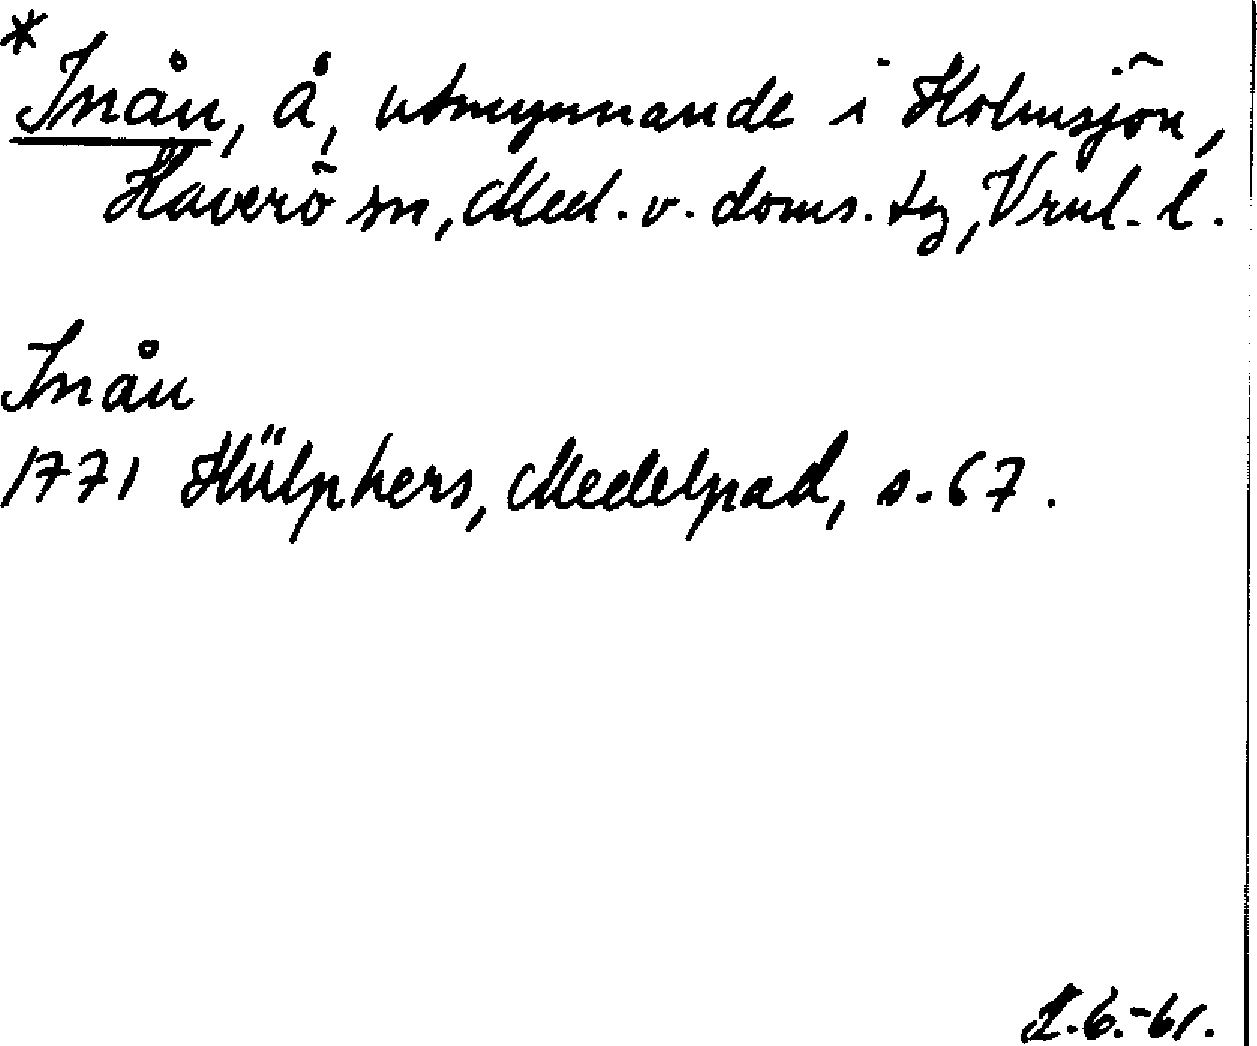 *
Inån, å, utmynnande i Holmsjön,
Haverö sn, Med. v. doms. tg, Vrnl. l.
Inån
1771 Hülphers, Medelpad, s. 67.